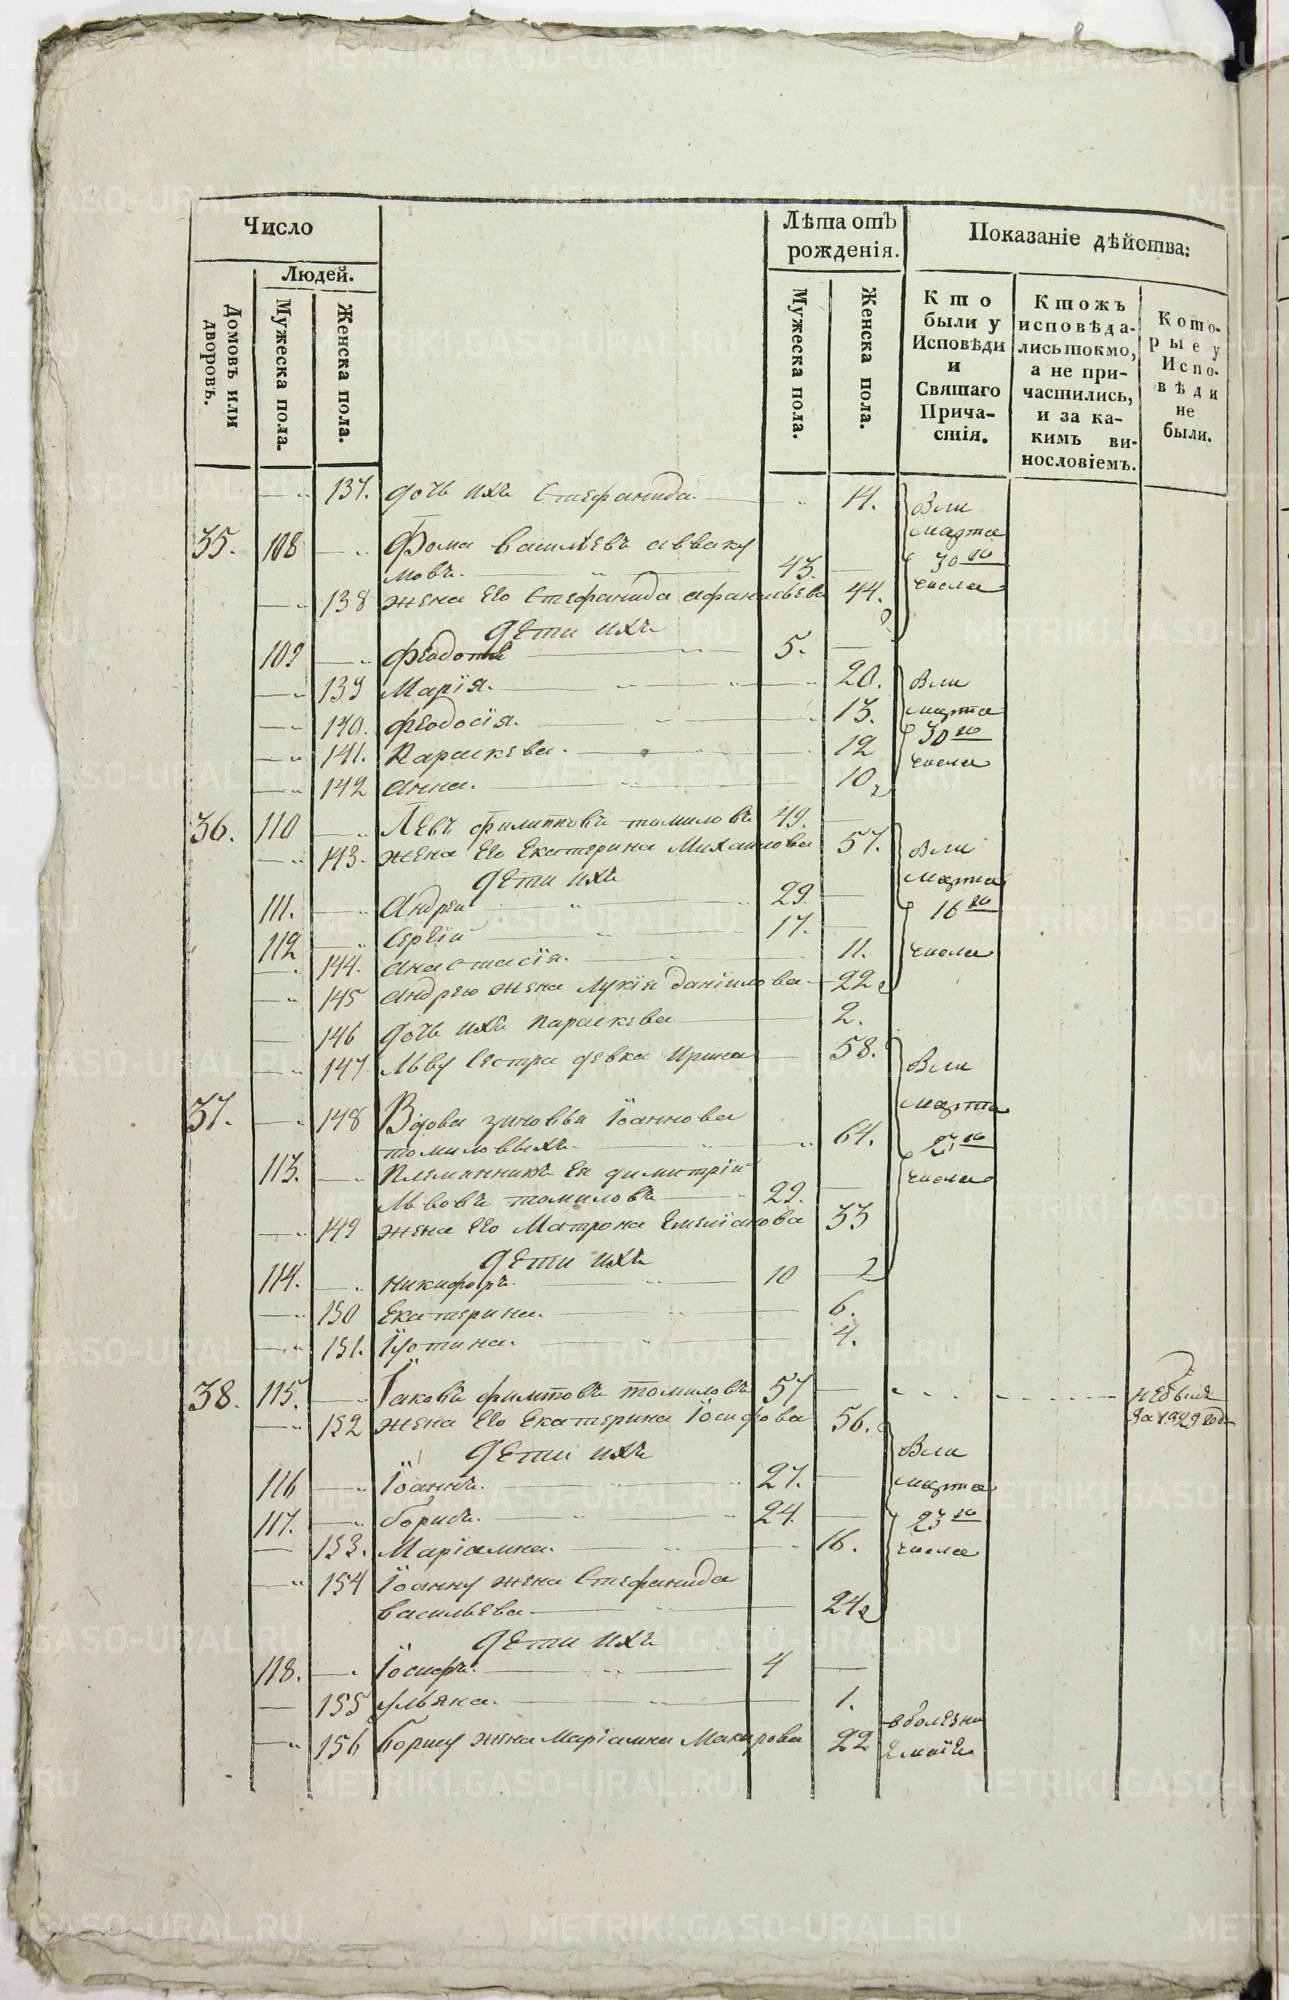 Число
Лѣта отъ рожденія.
Показаніе дѣйства:
Людей.
Домовъ или дворовъ.
Мужеска пола.
Женска пола.
Мужеска пола.
Женска пола.
Кто были у Исповѣди и Святаго Причастія.
Ктожъ исповѣдались токмо, а не причастились, и за какимъ винословіемъ.
Которые у Исповѣди не были.
137. дочь ихъ Стефанида. 14.
35. 108 Фома васильевъ авваку
мовъ. 43.
138 жена Его Стефанида афанасьева 44.
были
марта
30го
числа
дети ихъ
109 феодотъ 5.
139 Марія. 20.
140. феодосія. 13.
141. Параскева. 12
142 анна. 10
были
марта
30го
числа
36. 110 Левъ филиповъ томиловъ 49.
143. жена Его Екатерина Михаилова 57.
дети ихъ
111. Андрей 29
112 Сергій 17.
144. анастасія. 11.
145 андрею жена Лукія данилова 22
были
марта
16го
числа
146 дочь ихъ параскева 2.
147 Льву Сестра девка Ирина 58.
37. 148 Вдова зиновья Іоаннова
томиловыхъ. 64.
113. племянникъ Ея димитрій
Львовъ томиловъ 29.
149 жена Его Матрона Емеліанова 33
были
марта
23го
числа
дети ихъ
114. никифоръ 10
150 Екатерина. 6.
151. Іустина. 4.
38. 115. Іаковъ филиповъ томиловъ 57
небылъ
за 1829 годъ
152 жена Его Екатерина Іосифова 56.
дети ихъ
116 Іоаннъ. 27.
117. борисъ. 24.
153. Маріамна. 16.
154 Іоанну жена Стефанида
васильева 24
были
марта
23го
числа
дети ихъ
118. Іосифъ. 4
155 ульяна. 1.
156 борису жена Маріамна Макарова 22
в болезни
2 маія
METRIKI.GASO-URAL.RU